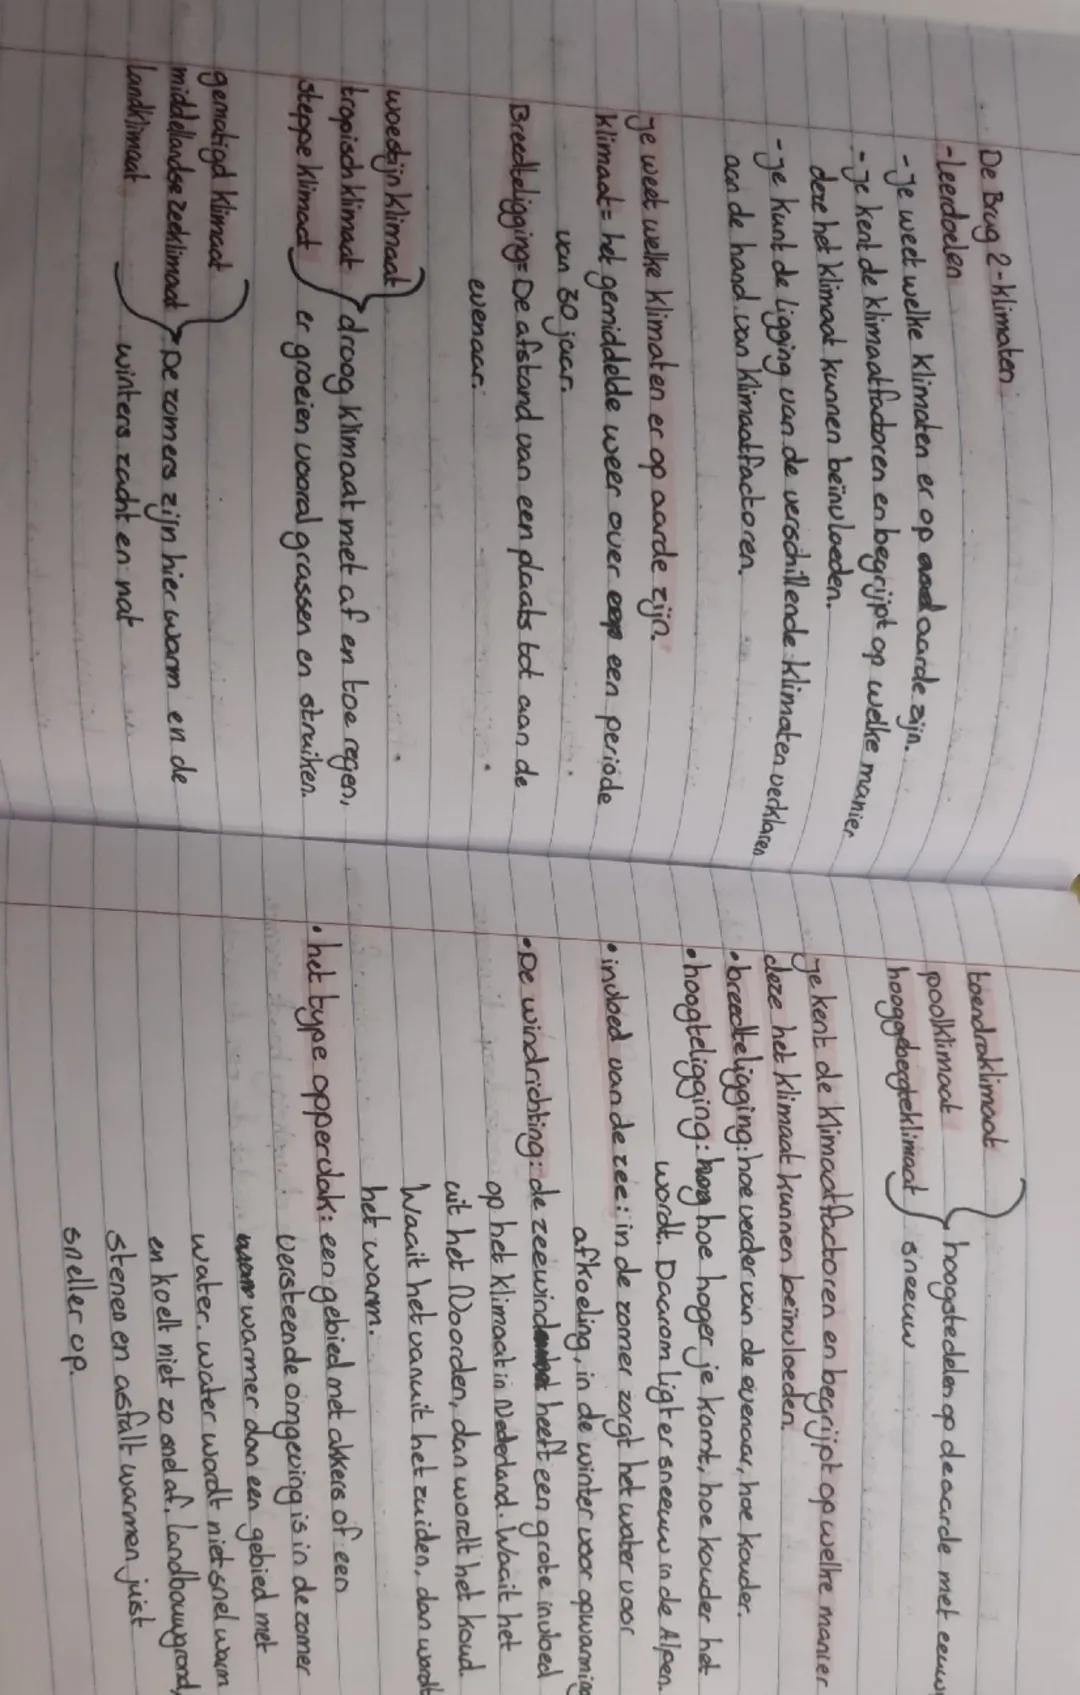 De Brug 2 - klimaten
- leerdoelen
- je weet welke klimaten er op aarde zijn.
- je kent de klimaatfactoren en begrijpt op welke manier
deze het klimaat kunnen beïnvloeden.
- je kunt de ligging van de verschillende klimaten verklaren
aan de hand van klimaatfactoren.
je weet welke klimaten er op aarde zijn.
klimaat = het gemiddelde weer over een periode
van 30 jaar.
Breedteligging = De afstand van een plaats tot aan de
evenaar.
woestijnklimaat
tropisch klimaat droog klimaat met af en toe regen,
steppe klimaat er groeien vooral grassen en struiken.
gematigd klimaat
middellandse zeeklimaat De zomers zijn hier warm en de
landklimaat winters zacht en nat
toendraklimaat
poolklimaat hoogstedelen op de aarde met eeuw
hooggebergteklimaat sneeuw
je kent de klimaatfactoren en begrijpt op welke manier
deze het klimaat kunnen beïnvloeden.
• breedteligging: hoe verder van de evenaar, hoe kouder.
• hoogteligging: hoe hoger je komt, hoe kouder het
wordt. Daarom ligt er sneeuw in de Alpen.
• invloed van de zee: in de zomer zorgt het water voor
afkoeling, in de winter voor opwarming
• De windrichting: de zeewind heeft een grote invloed
op het klimaat in Nederland. Waait het
uit het Noorden, dan wordt het koud.
Waait het vanuit het zuiden, dan wordt
het warm.
• het type opperdak: een gebied met akkers of een
versteende omgeving is in de zomer
warmer dan een gebied met
water. water wordt niet snel warm
en koelt niet zo snel af. landbouwgrond,
stenen en asfalt warmen juist
sneller op.